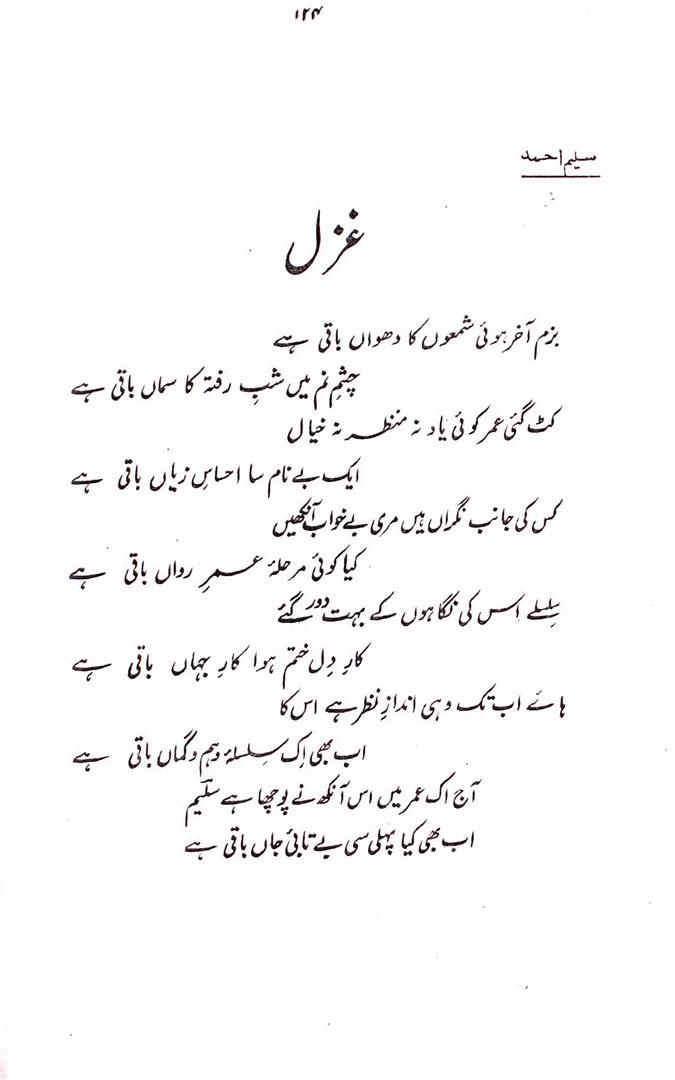 ۱۲۴
سلیم احمد
غزل
بزم آخر ہوئی شمعوں کا دھواں باقی ہے
چشمِ نم میں شبِ رفتہ کا سماں باقی ہے
کٹ گئی عمر کوئی یاد نہ منظر نہ خیال
ایک بے نام سا احساسِ زیاں باقی ہے
کس کی جانب نگراں ہیں مری بے خواب آنکھیں
کیا کوئی مرحلۂ عمرِ رواں باقی ہے
سلسلے اس کی نگاہوں کے بہت دور گئے
کارِ دل ختم ہوا کارِ جہاں باقی ہے
ہائے اب تک وہی اندازِ نظر ہے اس کا
اب بھی اِک سلسلۂ وہم و گماں باقی ہے
آج اک عمر میں اس آنکھ نے پوچھا ہے سلیم
اب بھی کیا پہلی سی بے تابیٔ جاں باقی ہے